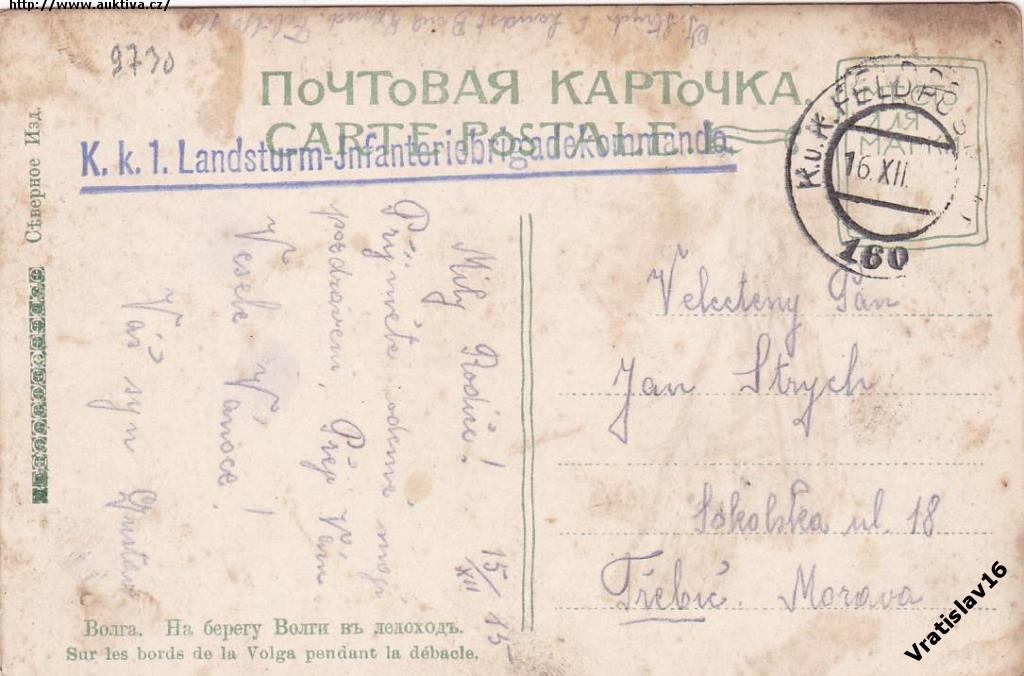 http://www.auktiva.cz/
9730
ПОЧТОВАЯ КАРТОЧКА.
CARTE POSTALE
МѢСТО
ДЛЯ
МАРКИ
K. k. 1. Landsturm-Infanteriebrigadekommando.
K.u.K. FELDPOST
16. XII.
160
Сѣверное Изд.
Milý Rodiče! 15/XII 15
Přijměte odemě moje
pozdravení, Přeji Vám
Veselé Vánoce!
Váš syn Gustav
Velectený Pán
Jan Strych
Sokolská ul. 18
Třebíč. Morava
Волга. На берегу Волги въ ледоходъ.
Sur les bords de la Volga pendant la débacle.
Vratislav16